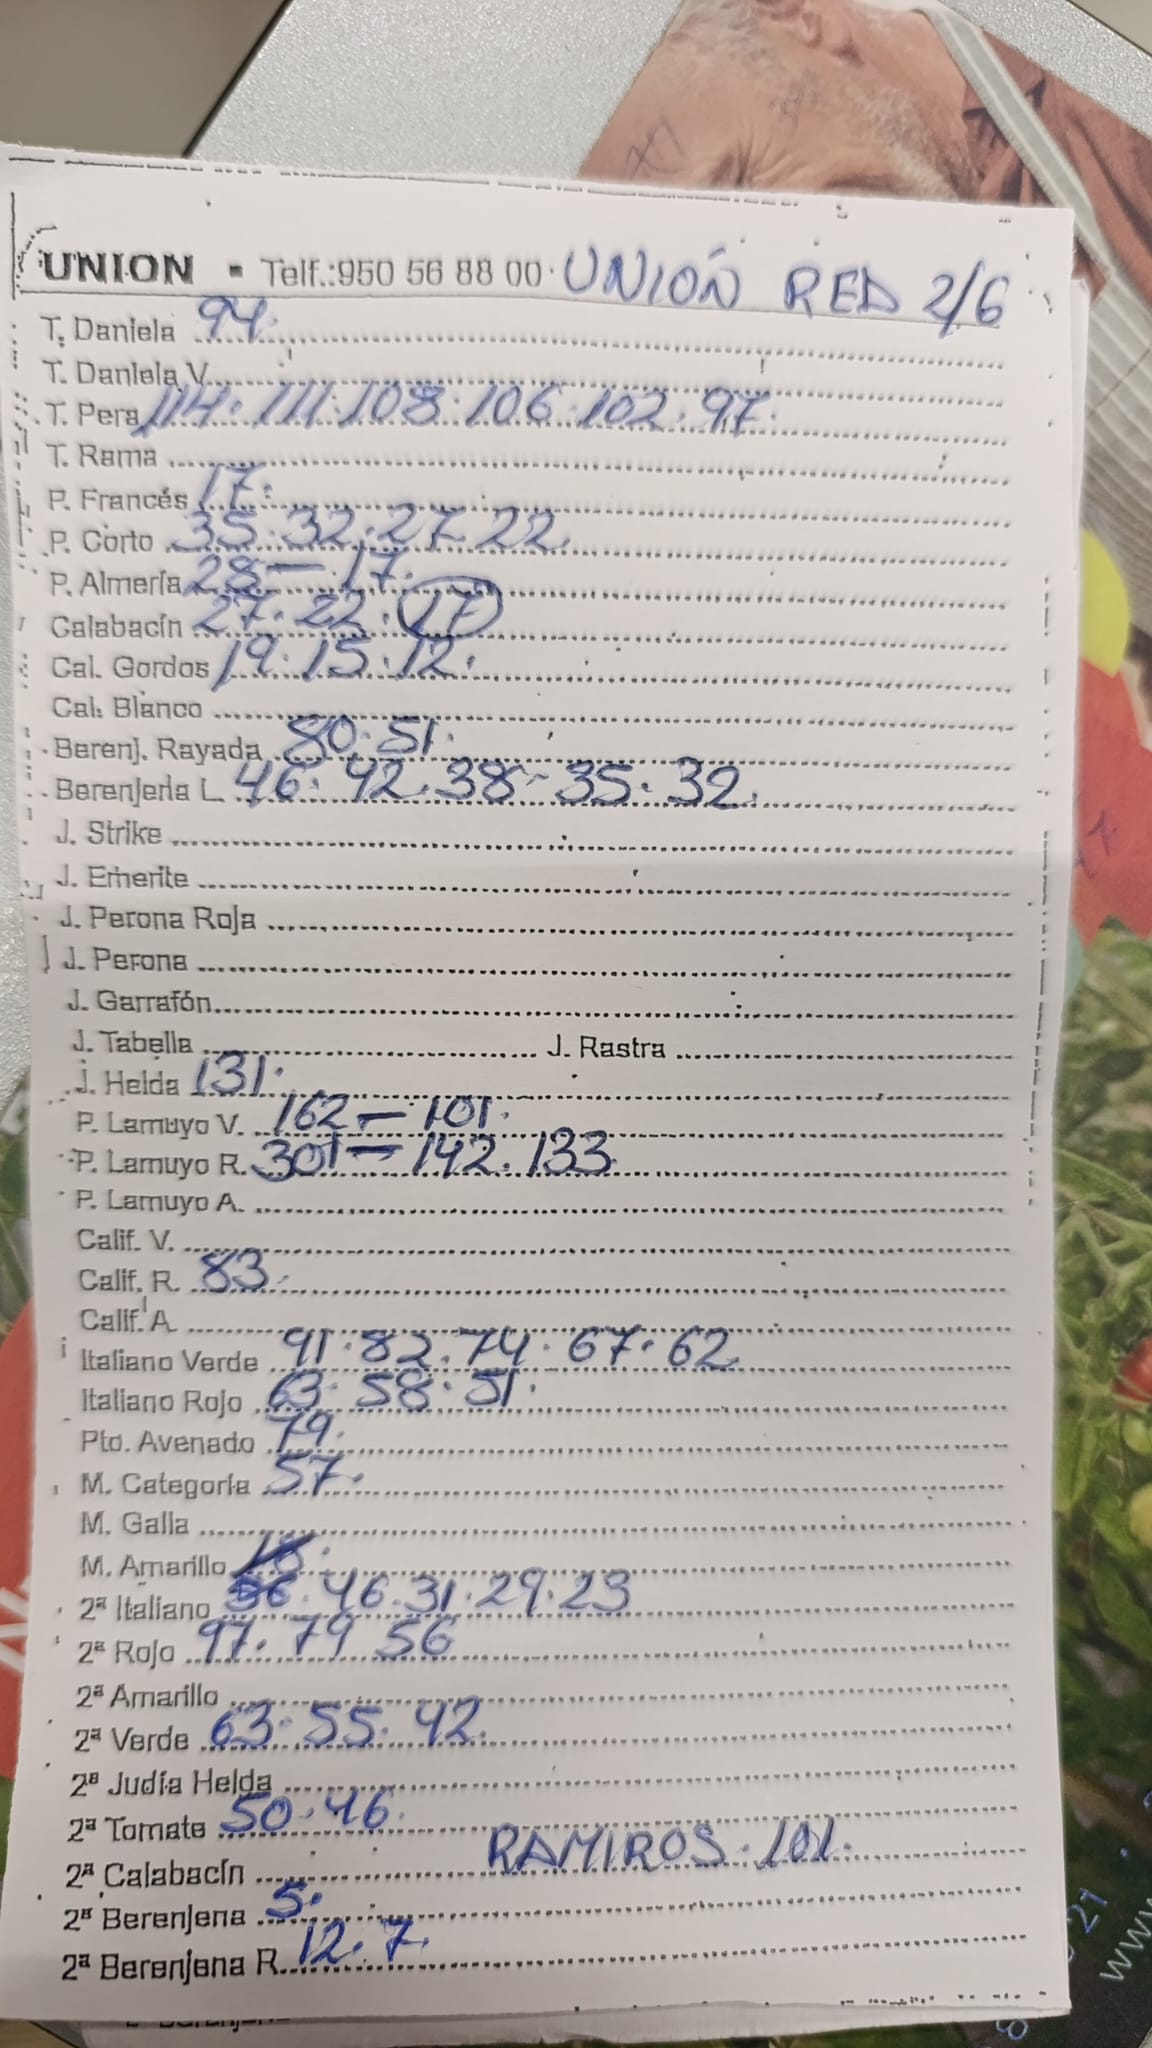 UNION - Telf.:950 56 88 00· UNIÓN RED 2/6
T. Daniela 94.
T. Daniela V.
T. Pera 114. 111. 108. 106. 102. 97.
T. Rama
P. Francés 17.
P. Corto 35. 32. 27. 22.
P. Almería 28 — 17.
Calabacín 27. 22. 17
Cal. Gordos 19. 15. 12.
Cal. Blanco
Berenj. Rayada 80. 51.
Berenjena L. 46. 42. 38 - 35. 32.
J. Strike
J. Emerite
J. Perona Roja
J. Perona
J. Garrafón
J. Tabella J. Rastra
J. Helda 131.
P. Lamuyo V. 162 — 101.
P. Lamuyo R. 301 — 142. 133.
P. Lamuyo A.
Calif. V.
Calif. R. 83.
Calif. A.
Italiano Verde 91. 82. 74. 67. 62.
Italiano Rojo 63. 58. 51.
Pto. Avenado 79.
M. Categoría 57.
M. Galla
M. Amarillo 18.
2ª Italiano 46. 31. 29. 23
2ª Rojo 97. 79 56
2ª Amarillo
2ª Verde 63. 55. 42.
2ª Judía Helda
2ª Tomate 50. 46.
2ª Calabacín RAMIROS. 101.
2ª Berenjena 5.
2ª Berenjena R. 12. 7.